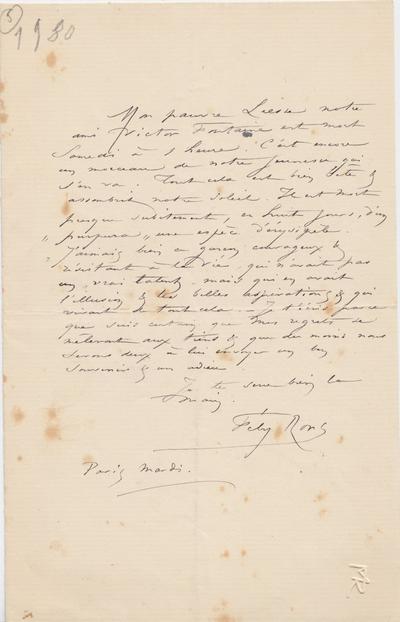 (5)
1980
Mon pauvre Liesse notre
ami Victor Fontaine est mort
Samedi à 1 heure. C'est encore
un morceau de notre jeunesse qui
s'en va. Tout cela est bien bête &
assombrit notre soleil. Il est mort
presque subitement, en huit jours, d'un
"purpura" une espèce d'érysipèle.
J'aimais bien ce garçon courageux &
résistant à la vie, qui n'avait pas
un vrai talent mais qui en avait
l'illusion & les belles aspirations & qui
vivait de tout cela. Je t'écris parce
que suis certain que mes regrets se
mêleront aux tiens & que du moins nous
serons deux à lui envoyer un bon
souvenir & un adieu.
Je te serre bien la
main,
Fély Rops
Paris Mardi.